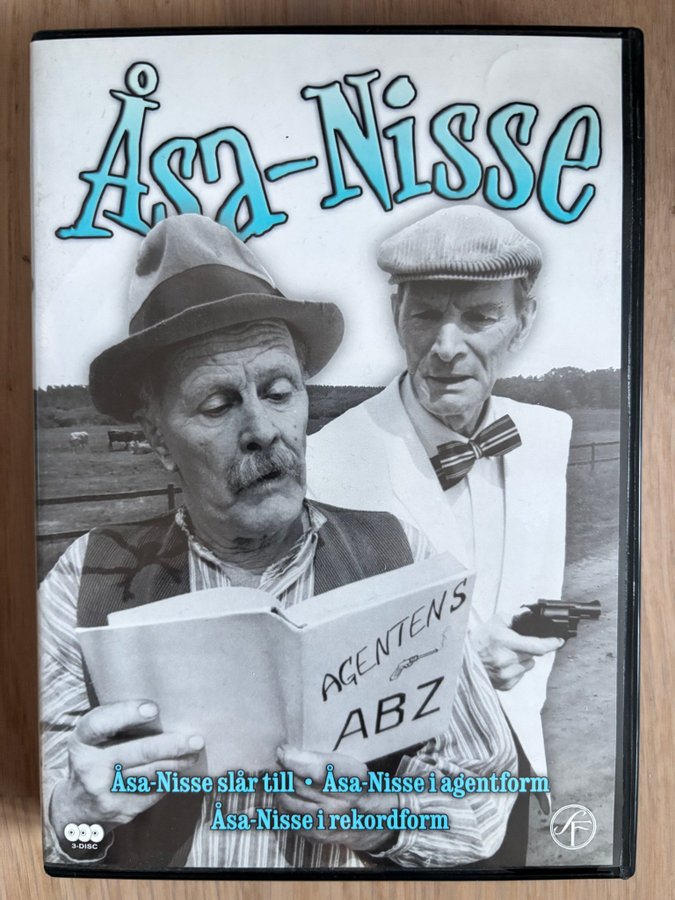 Åsa-Nisse
AGENTENS
ABZ
Åsa-Nisse slår till • Åsa-Nisse i agentform
Åsa-Nisse i rekordform
3-DISC
SF